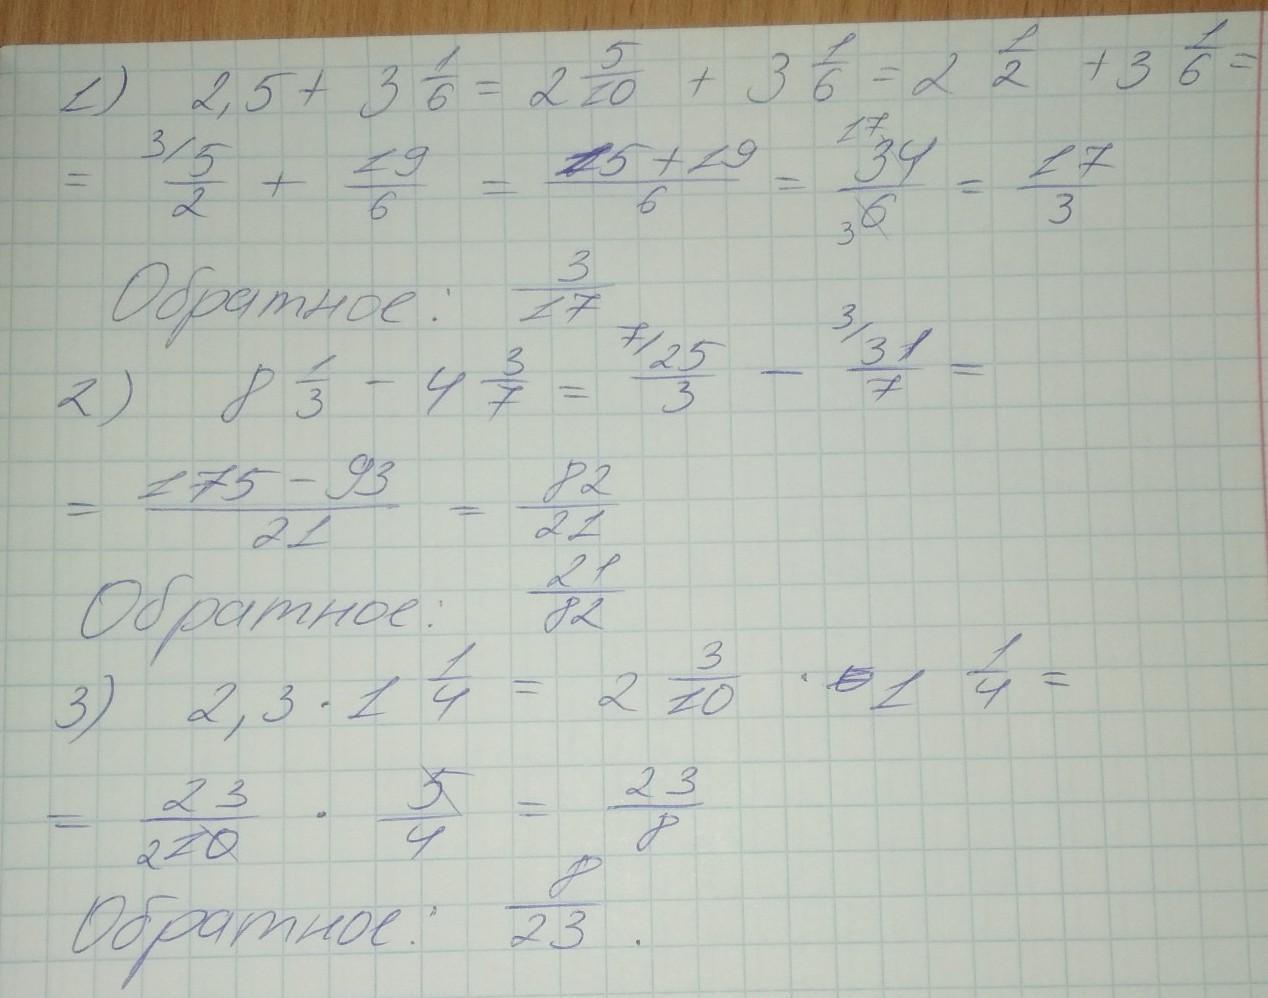 1) 2,5 + 3 1/6 = 2 5/10 + 3 1/6 = 2 1/2 + 3 1/6 =
= 3/ 5/2 + 19/6 = (15 + 19)/6 = 17 34/6 3 = 17/3
Обратное: 3/17
2) 8 1/3 - 4 3/7 = 7/ 25/3 - 3/ 31/7 =
= (175 - 93)/21 = 82/21
Обратное: 21/82
3) 2,3 · 1 1/4 = 2 3/10 · 1 1/4 =
= 23/10 2 · 5/4 = 23/8
Обратное: 8/23 .